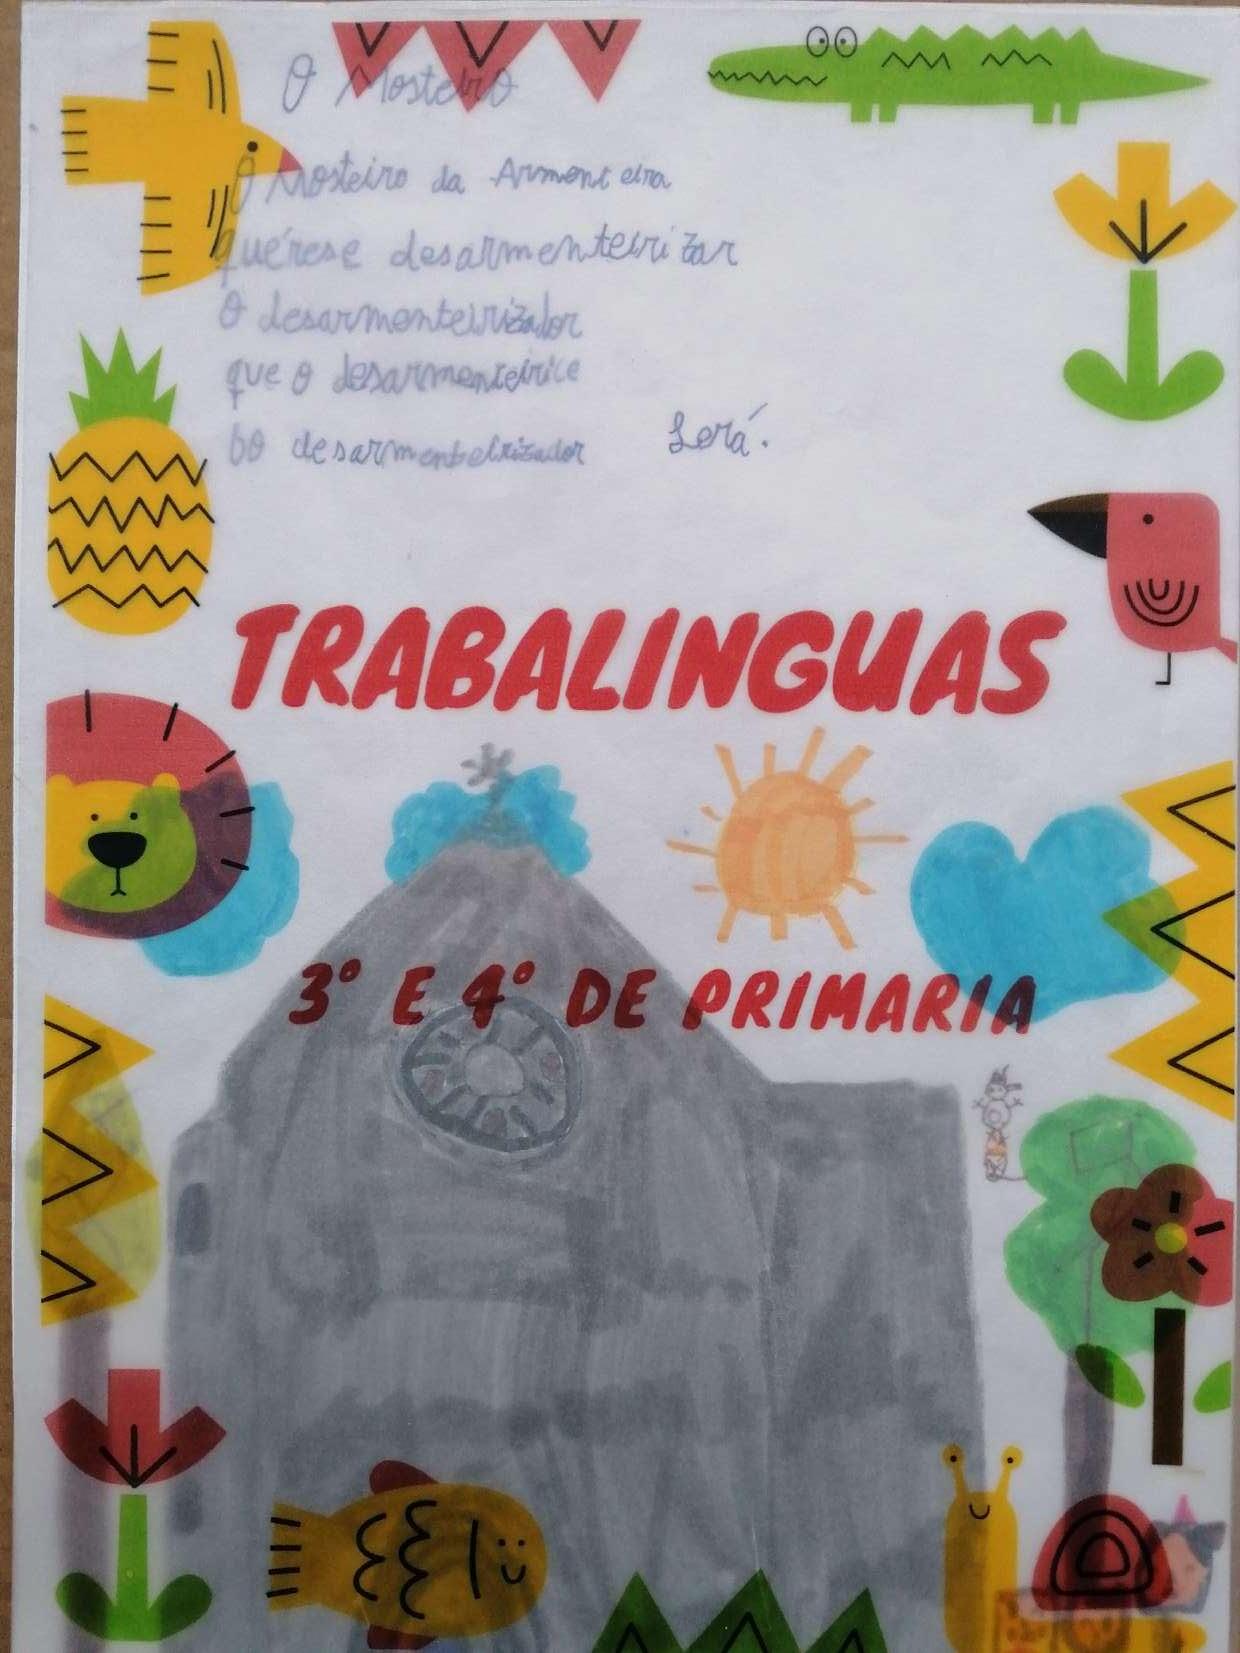 O Mosteiro
O Mosteiro da Armenteira
quérese desarmenteirizar
O desarmenteirizador
que o desarmenteirice
bo desarmenteirizador será.
TRABALINGUAS
3º E 4º DE PRIMARIA